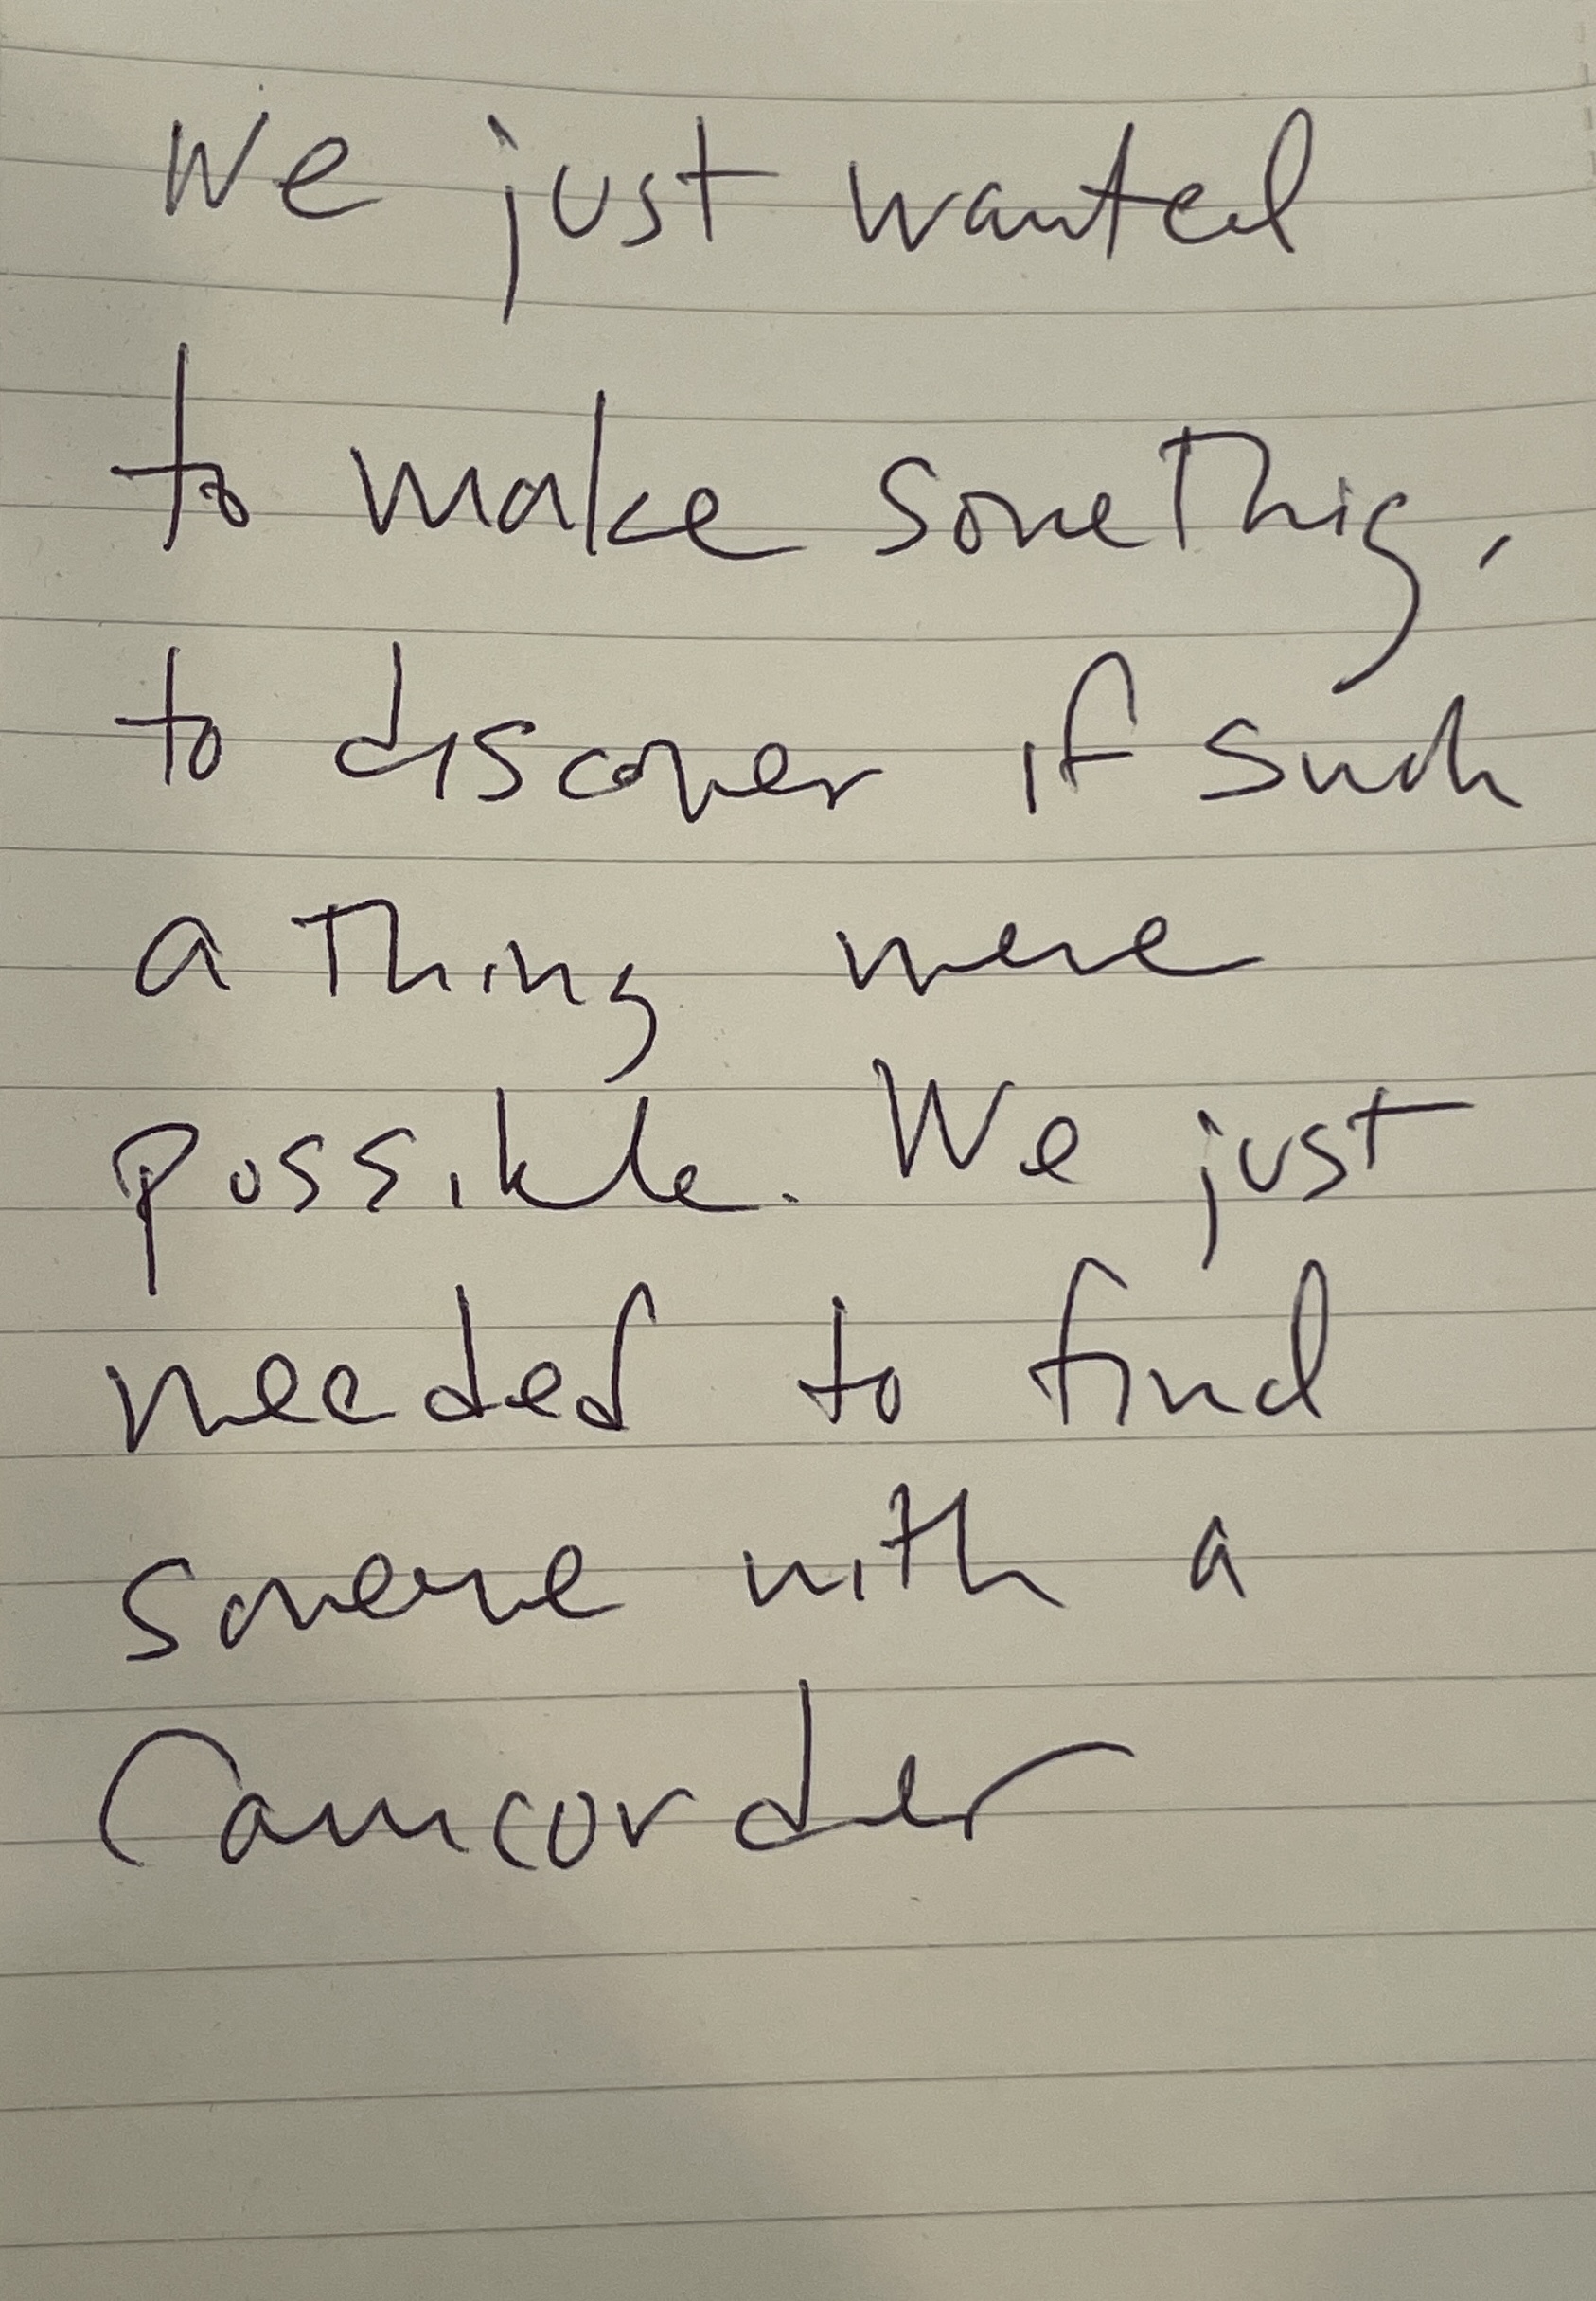 We just wanted
to make something,
to discover if such
a thing were
possible. We just
needed to find
someone with a
camcorder